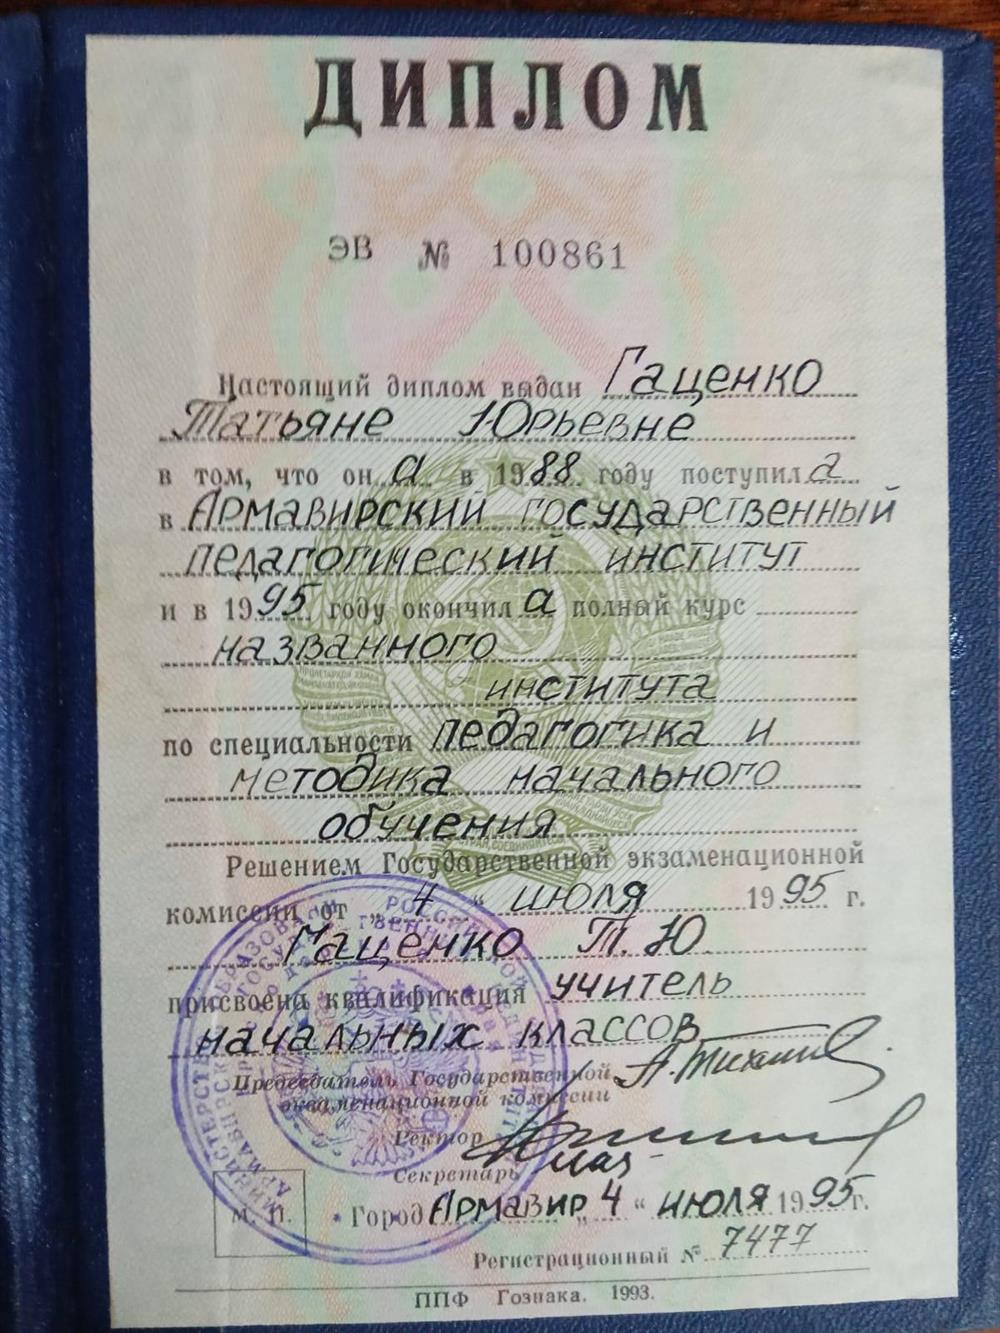 ДИПЛОМ
ЭВ № 100861
Настоящий диплом выдан Гаценко
Татьяне Юрьевне
в том, что он а в 1988 году поступил а
в Армавирский государственный
педагогический институт
и в 1995 году окончил а полный курс
названного
института
по специальности педагогика и
методика начального
обучения
Решением Государственной экзаменационной
комиссии от „4“ июля 1995 г.
Гаценко Т.Ю.
присвоена квалификация учитель
начальных классов
Председатель Государственной
экзаменационной комиссии
Ректор
Секретарь
М. П.
Город Армавир „4“ июля 1995г.
Регистрационный № 7477
ППФ Гознака. 1993.